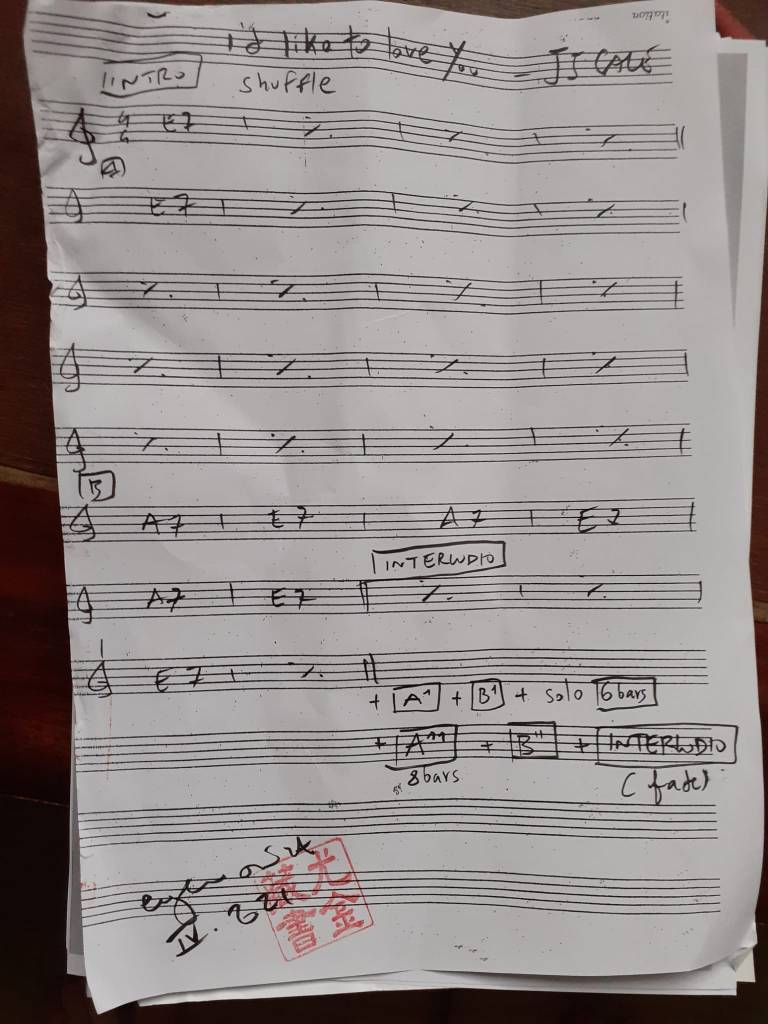 I'd like to love You - JJ CALE
INTRO shuffle
4/4 E7 | ٪ | ٪ | ٪ ||
A
E7 | ٪ | ٪ | ٪ |
٪ | ٪ | ٪ | ٪ |
٪ | ٪ | ٪ | ٪ |
٪ | ٪ | ٪ | ٪ |
B
A7 | E7 | A7 | E7 |
INTERLUDIO
A7 | E7 || ٪ | ٪ |
E7 | ٪ ||
+ A' + B' + solo 6 bars
+ A''' + B'' + INTERLUDIO
8 bars (fade)
IV. 2021
尤金
藏書